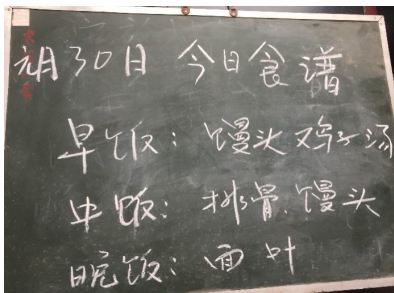 元月30日 今日食谱
早饭：馒头鸡子汤
中饭：排骨、馒头
晚饭：面叶